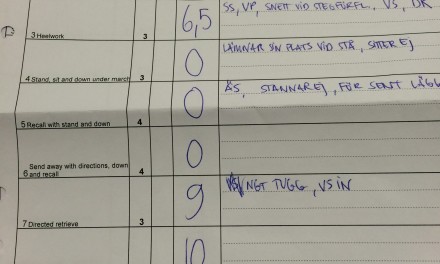 SS, VP, SNETT VID STEGFÖRFL, VS, DK
3 Heelwork 3 6,5
LÄMNAR SIN PLATS VID STÅ, SITTER EJ
4 Stand, sit and down under march 3 0
ÅS, STANNAR EJ, FÖR SENT LÄGG
5 Recall with stand and down 4 0
Send away with directions, down
6 and recall 4 0
NGT TUGG, VS IN
7 Directed retrieve 3 9
10